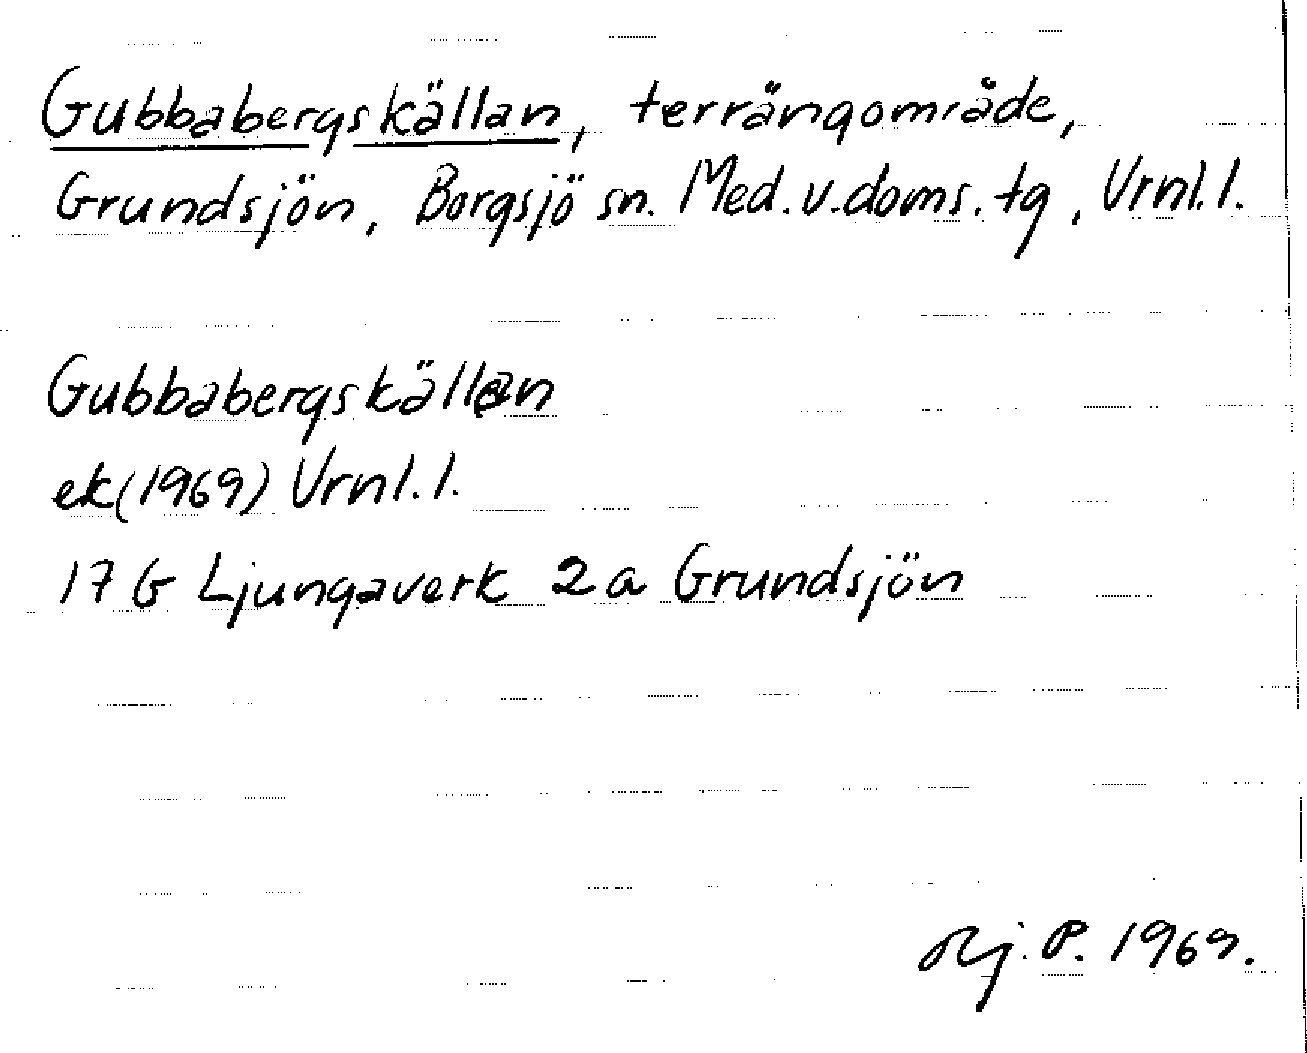 Gubbabergskällan, terrängområde,
Grundsjön, Borgsjö sn. Med.v.doms.tg, Vrnl.l.
Gubbabergskällan
ek(1969) Vrnl.l.
17 G Ljungaverk 2a Grundsjön
P. 1969.